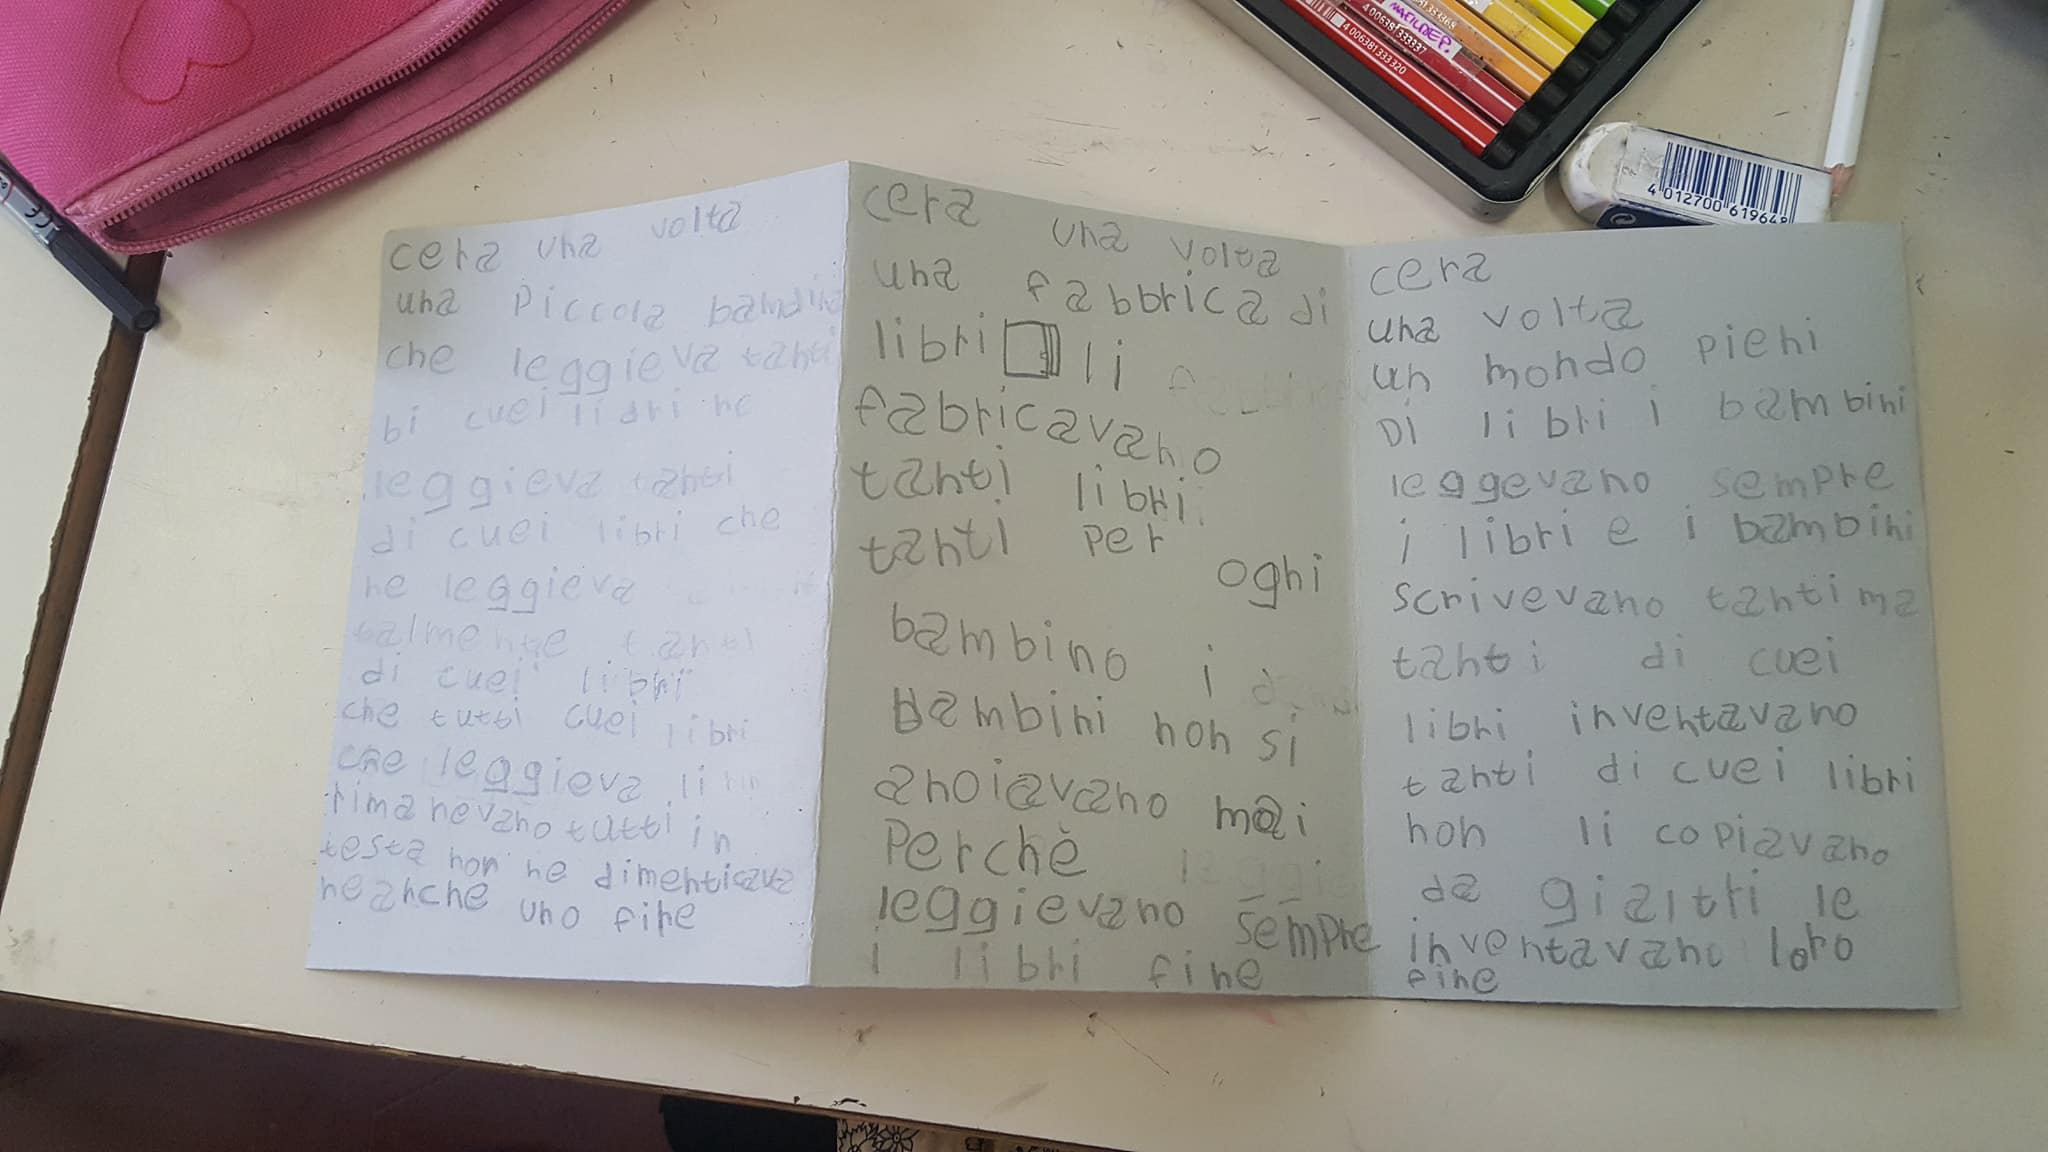 cera una volta
una piccola bamdina
che leggieva tanti
bi cuei lidri ne
leggieva tanti
di cuei libri che
ne leggieva
talmente tanti
di cuei libri
che tutti cuei libri
che leggieva li
rimanevano tutti in
testa non ne dimenticava
neanche uno fine
cera una volta
una fabbrica di
libri li
fabricavano
tanti libri
tanti per
ogni
bambino i
bambini non si
anoiavano mai
Perchè
leggievano sempre
i libri fine
cera
una volta
un mondo pieni
Di libri i bambini
leggevano sempre
i libri e i bambini
scrivevano tanti ma
tanti di cuei
libri inventavano
tanti di cuei libri
non li copiavano
da gialtri le
inventavano loro
fine
MATILDE P.
4006381333368
4006381333337
4006381333320
4 012700 619648